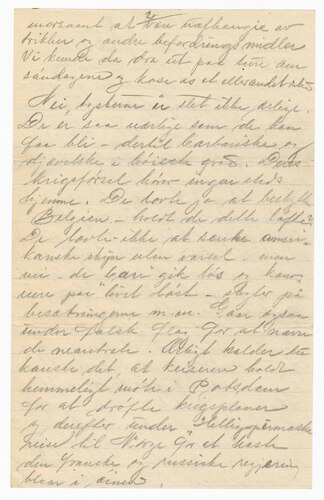 morsomt at være uafhængig av
trikker og andre befordringsmidler
Vi kunde da dra ut paa ture om
søndagene og kose os et eller andet sted
Nei tyskerne er slet ikke ærlige.
De er saa uærlige som de kan
faa bli – dertil barbariske og
djevelske i høieste grad. Deres
krigsførsel hører ingen steds
hjemme. De lovte jo at beskytte
Belgien – holdt de dette løfte?
De lovte ikke at senke ameri-
kanske skip uten varsel – men
nu – de gaar gik løs og
paa livet løst –
besætningerne m.m. Gaar ogsaa
under falsk flag for at narre
de neautrale. Ærligt kalder du
kanske det, at keiseren holdt
hemmeligt møte i Potsdam
for at drøfte krigsplaner
og derefter under
reise til Norge for at kaste
den franske og russiske regjering
blaar i øinene.